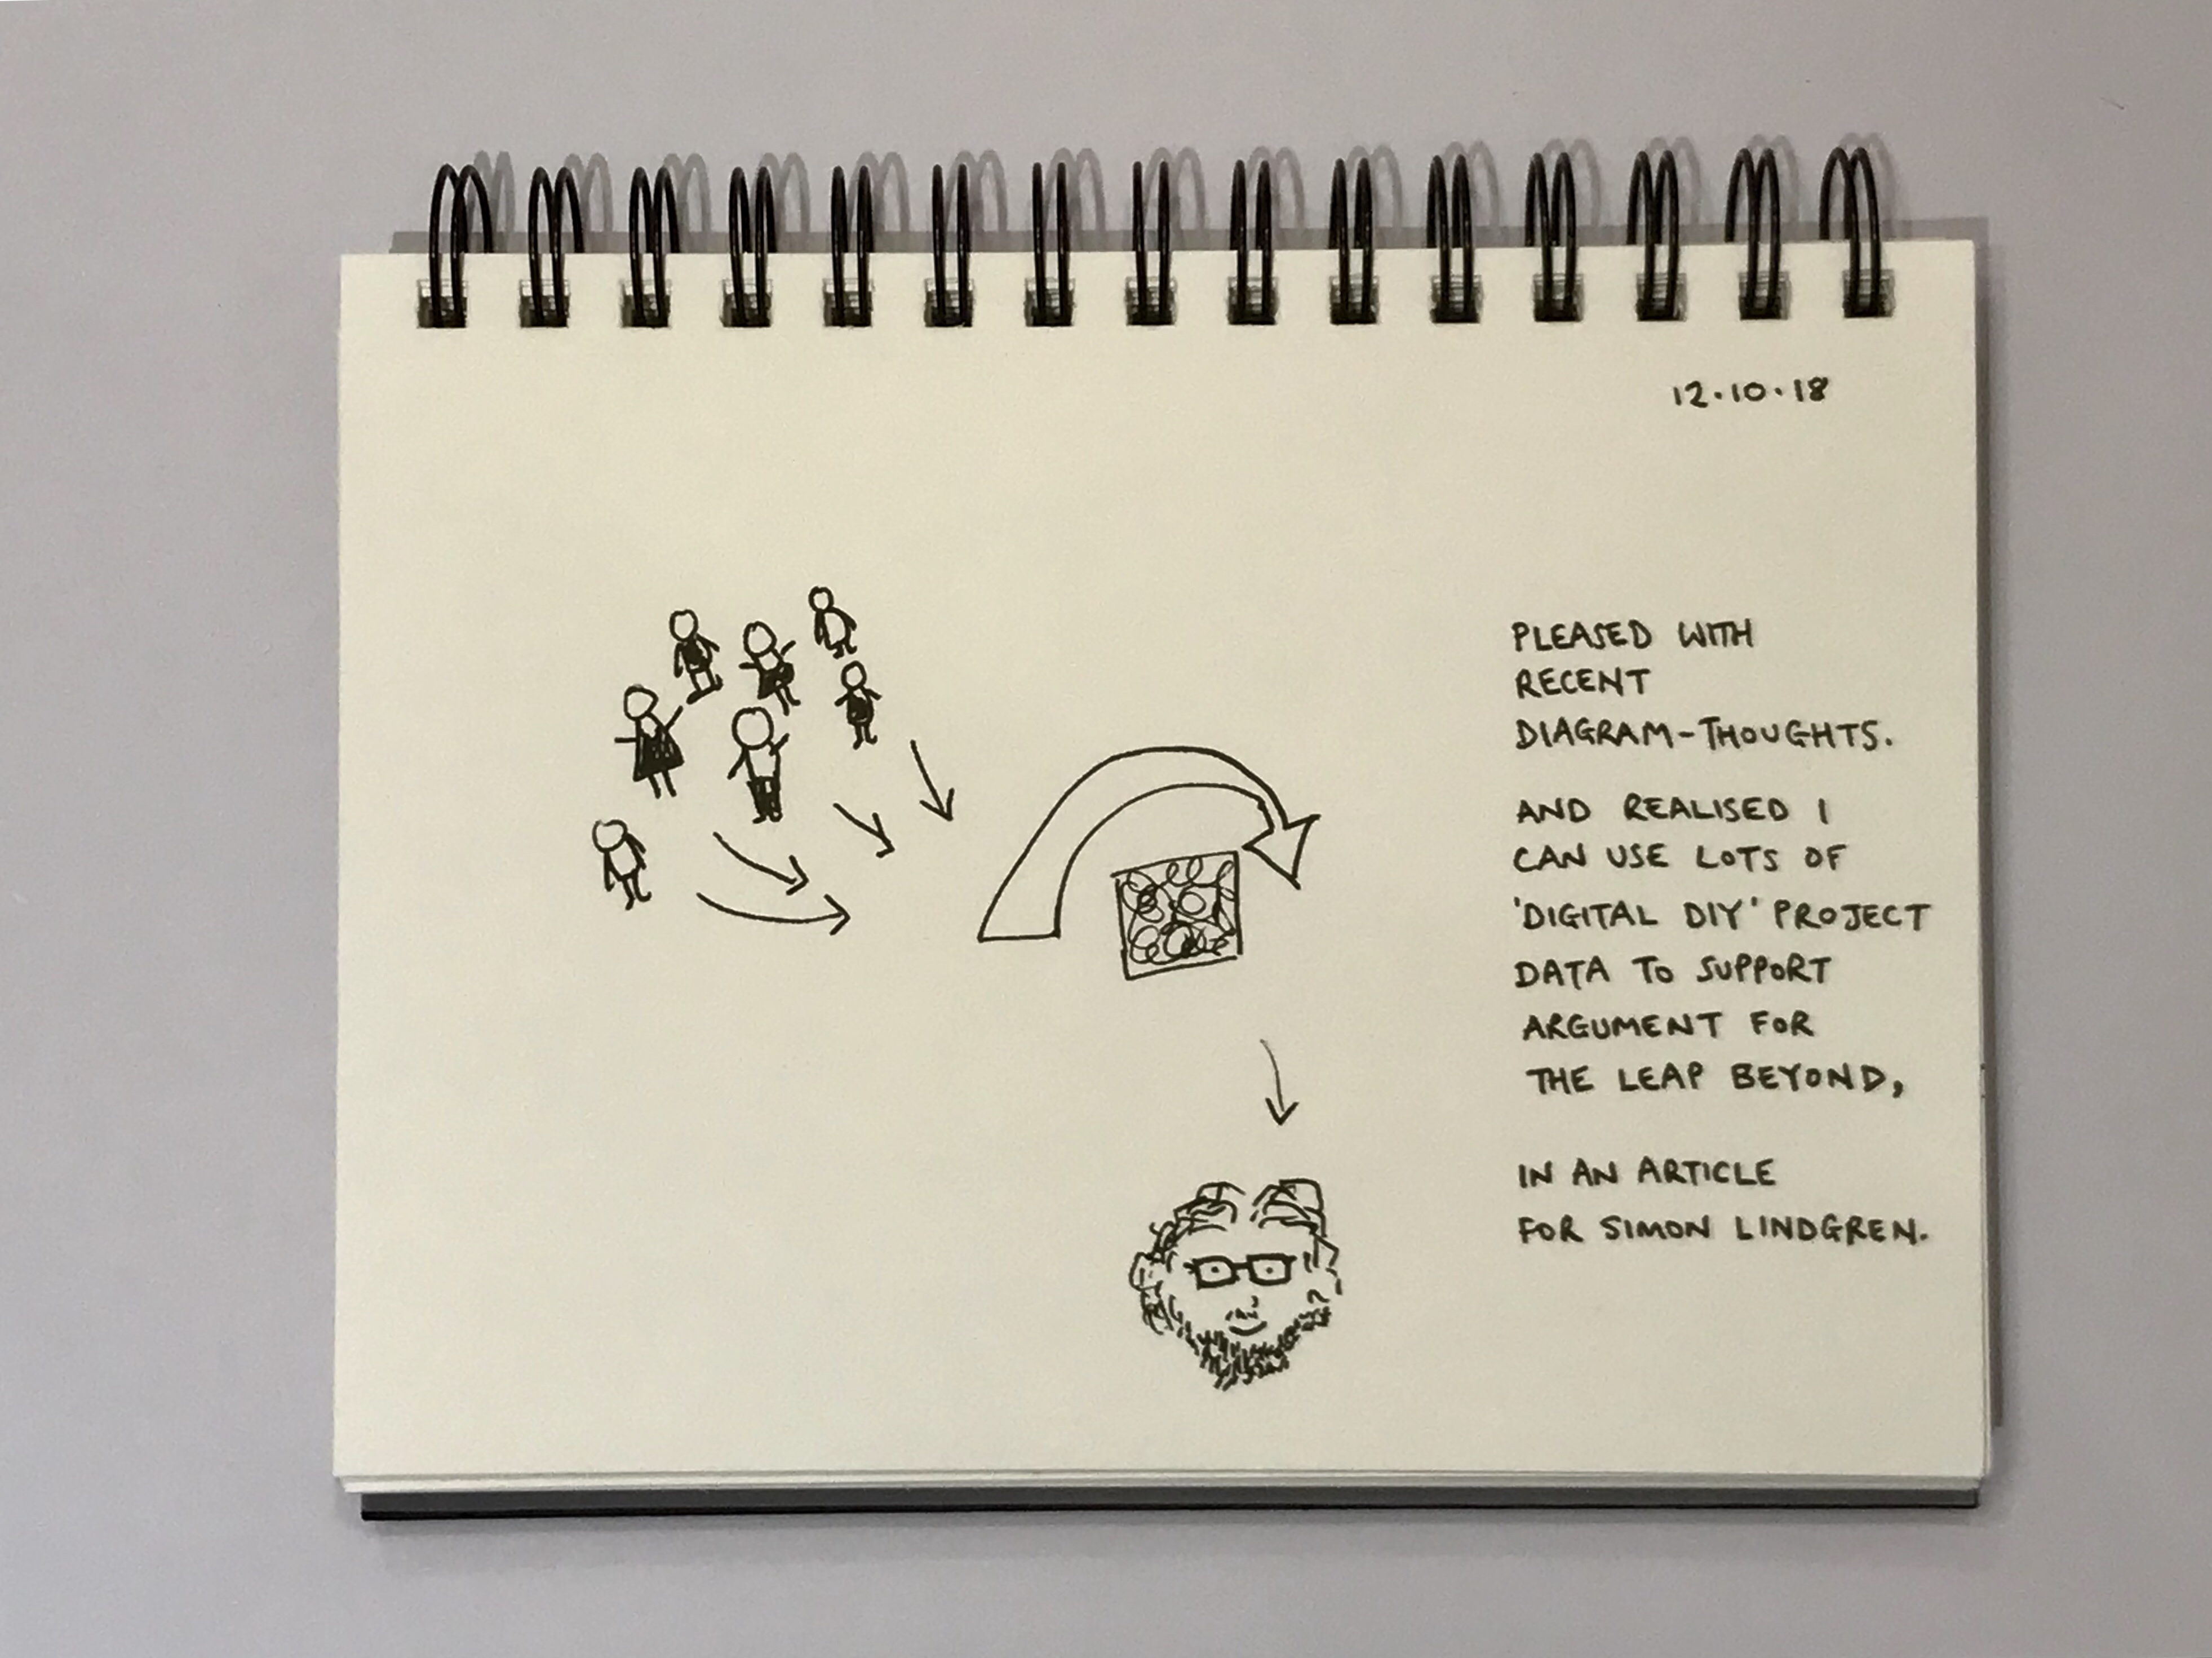 12.10.18
PLEASED WITH
RECENT
DIAGRAM-THOUGHTS.
AND REALISED I
CAN USE LOTS OF
'DIGITAL DIY' PROJECT
DATA TO SUPPORT
ARGUMENT FOR
THE LEAP BEYOND,
IN AN ARTICLE
FOR SIMON LINDGREN.